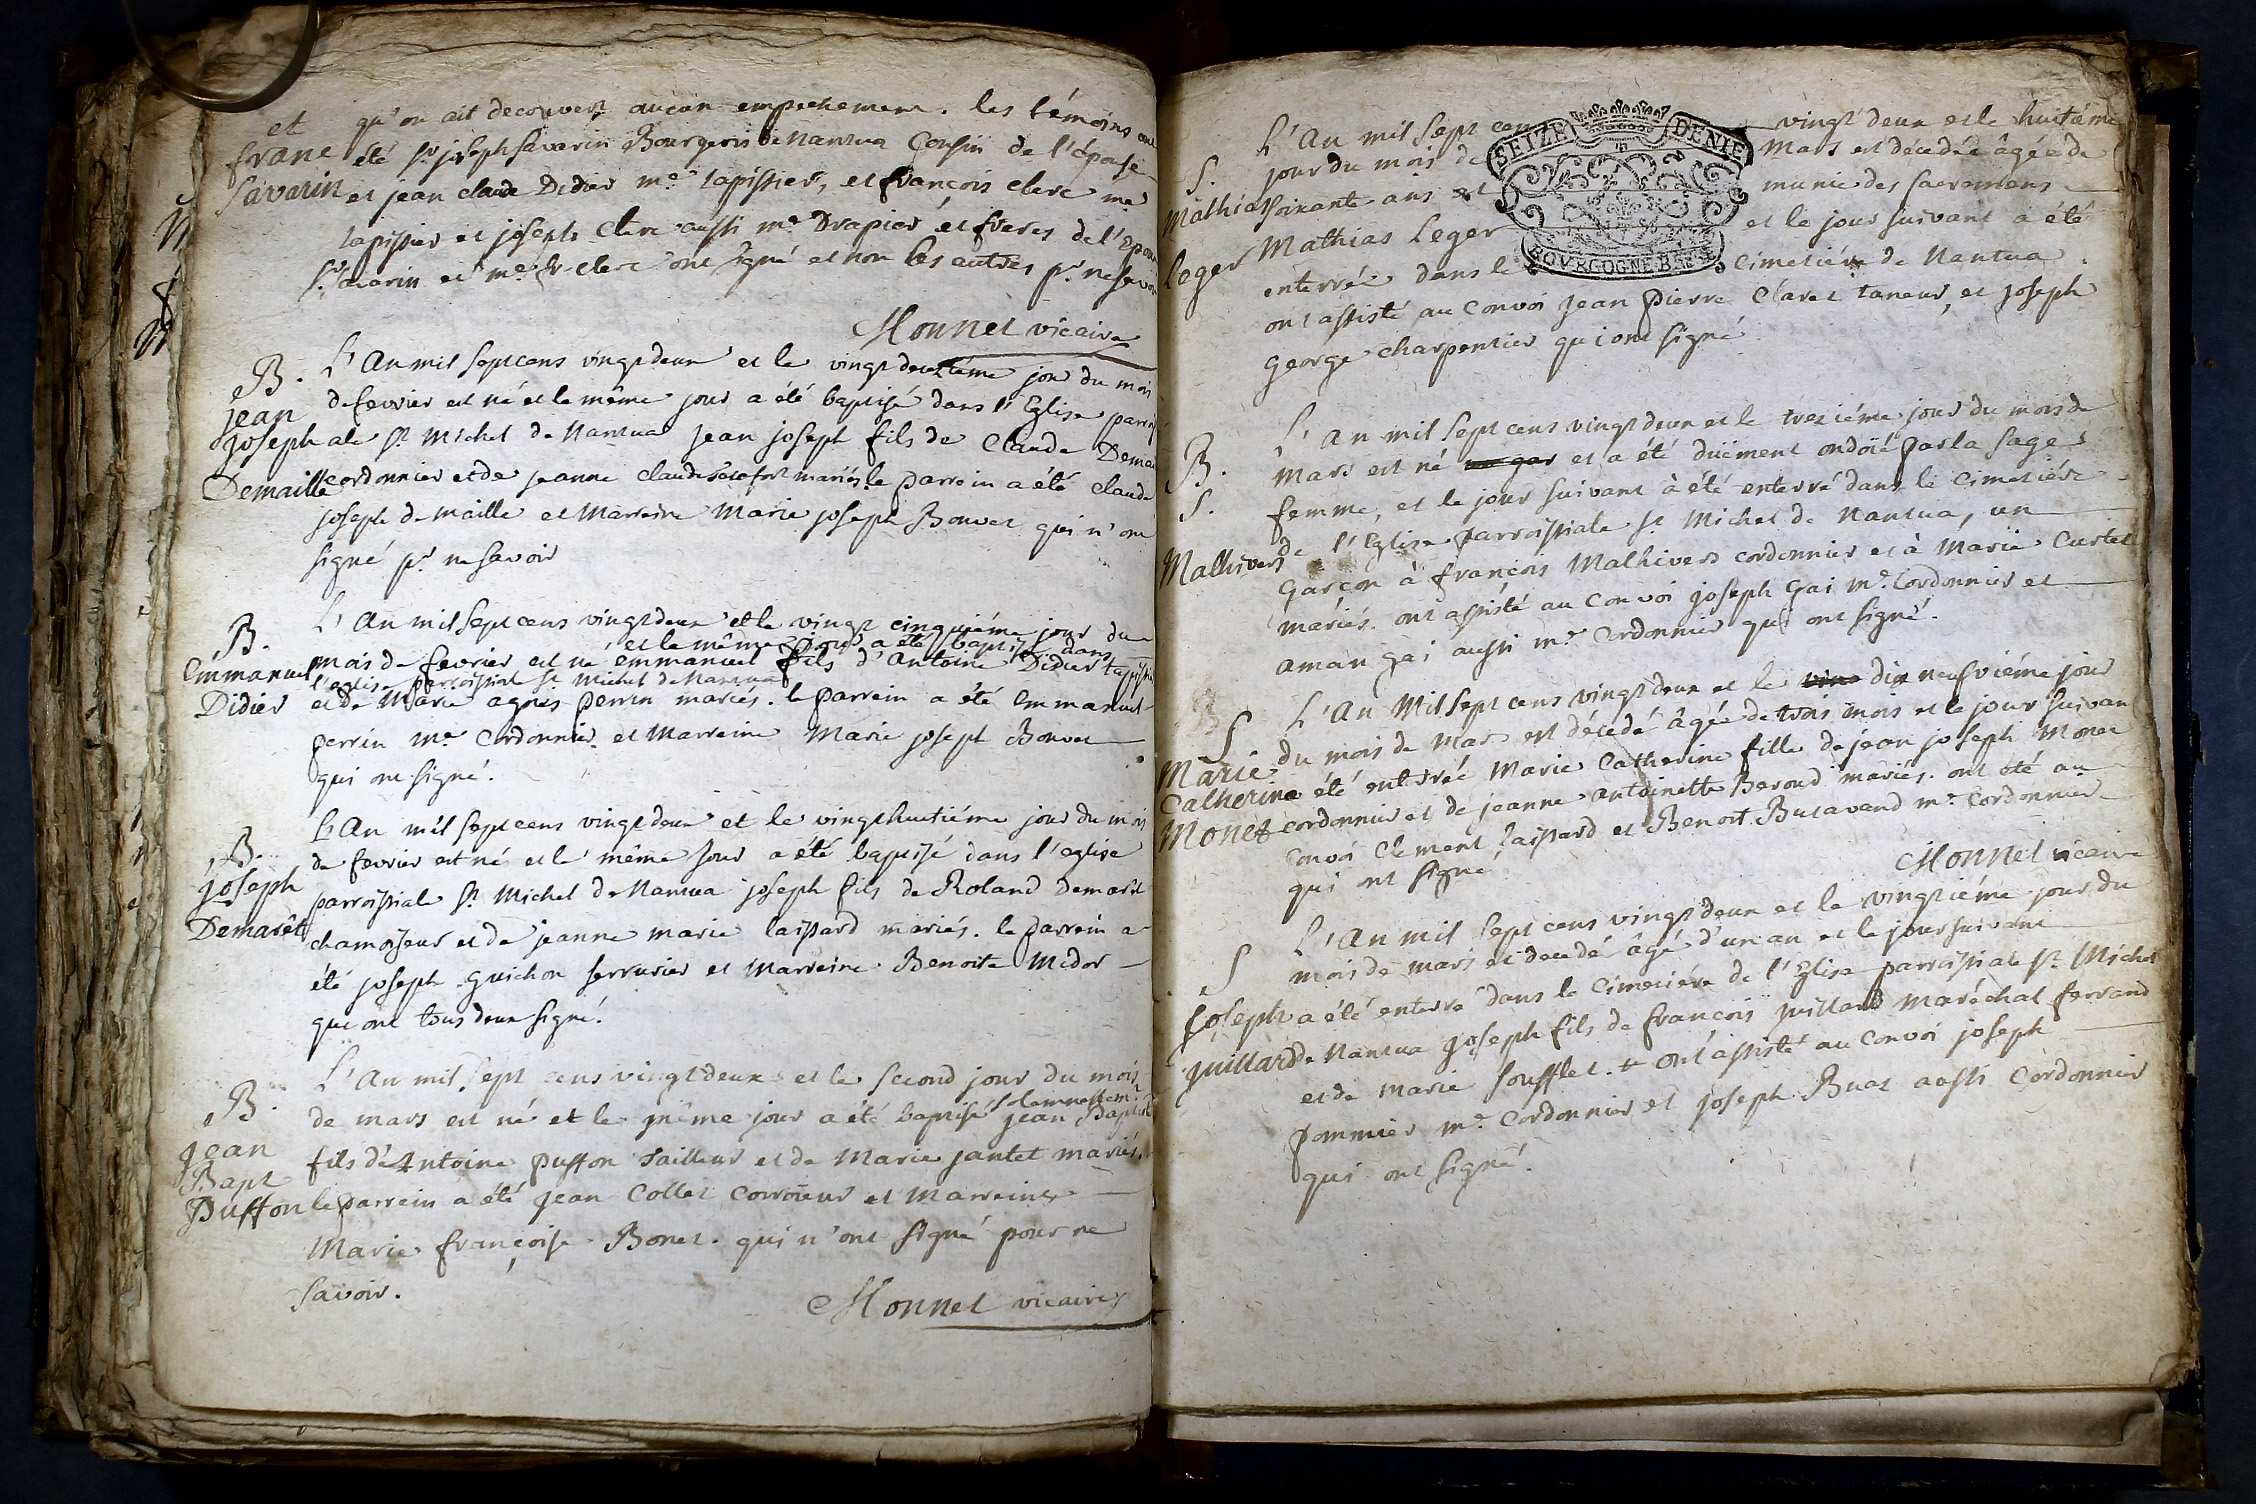 et
franc
Savarin
qu'on ait decouvert aucun empechement. les témoins ont
été Sr joseph Savarin Bourgeois de Nantua Cousin de l'épouse
et jean claude Didier me tapissier, et françois clerc me
tapissier et joseph clerc aussi me Drapier et freres de l'Epoux
Sr Savarin et me fr. clerc ont signé et non les autres pr ne savoir
Monnet vicaire
B.
jean
joseph
Demaille
L'An mil sept cens vingt deux et le vingt deuxiéme jour du mois
de fevrier est né et le même jour a été baptisé dans l'Eglise parroissi
ale St Michel de Nantua jean joseph fils de Claude Demaille
cordonnier et de jeanne claudine mariés. le parrein a été claude
joseph demaille et Marreine Marie joseph Bonvet qui n'ont
signé pr ne savoir
B.
Emmanuel
Didier
L'An mil sept cens vingt deux et le vingt cinquiéme jour du
et le même jour a été baptisé dans
mois de fevrier est né emmanuel fils d'Antoine Didier tapissier
l'eglise parroissial St Michel de Nantua
et de Marie agnés perrin mariés. le parrein a été Emmanuel
perrin me Cordonnier et Marreine Marie joseph Bonvet
qui ont signé.
B.
joseph
Demarêt
L'An mil sept cens vingt deux et le vingt huitiéme jour du mois
de fevrier est né et le même jour a été baptisé dans l'eglise
parroissiale St Michel de Nantua joseph fils de Roland Demarêt
chamoiseur et de jeanne marie laissard mariés. le parrein a
été joseph guichon serrurier et Marreine Benoite Midor
qui ont tous deux signé.
B.
jean
Bapt
Puffon
L'An mil sept cens vingt deux et le second jour du mois
de mars est né et le même jour a été baptisé solemnellemt jean Baptiste
fils d'Antoine puffon tailleur et de Marie jantet mariés.
le parrein a été jean Collet corroieur et Marreine
Marie françoise Bonet. qui n'ont signé pour ne
savoir.
Monnet vicaire
SEIZE DENIE
BOURGOGNE BRESSE
S.
Mathias
Leger
L'An mil sept cens vingt deux et le huitiéme
jour du mois de Mars est décedée âgée de
soixante ans et munie des sacremens
Mathias Leger et le jour suivant a été
enterrée dans le Cimetiére de Nantua.
ont assisté au convoi jean pierre Claret taneur, et joseph
george charpentier qui ont signé
B.
S.
Malhivers
L'An mil sept cens vingt deux et le treziéme jour du mois de
Mars est né un gar et a été duëment ondoié par la sage
femme, et le jour suivant à été enterré dans le Cimetiére
de l'Eglise parroissiale St Michel de Nantua, un
Garçon à françois Malhivers cordonnier et à Marie Curtet
mariés. ont assisté au convoi joseph Gai me Cordonnier et
aman gai aussi me Cordonnier qui ont signé.
S
Marie
Catherine
Monet
L'An Mil sept cens vingt deux et le vine dix neufviéme jour
du mois de Mars est décedé âgée de trois mois et le jour suivant
a été enterrée Marie Catherine fille de jean joseph Monet
cordonnier et de jeanne Antoinette Beroud mariés. ont été au
convoi Clement laissard et Benoit Butavand me Cordonnier
qui ont signé
Monnet vicaire
S
joseph
juillard
L'An mil sept cens vingt deux et le vingtiéme jour du
mois de mars est decedé âgé d'un an et le jour suivant
a été enterré dans le Cimetiére de l'Eglise parroissiale St Michel
de Nantua joseph fils de francois juillard Maréchal ferrand
et de Marie soufflet. + ont assisté au convoi joseph
pommier me Cordonnier et joseph Buat aussi Cordonnier
qui ont signé.